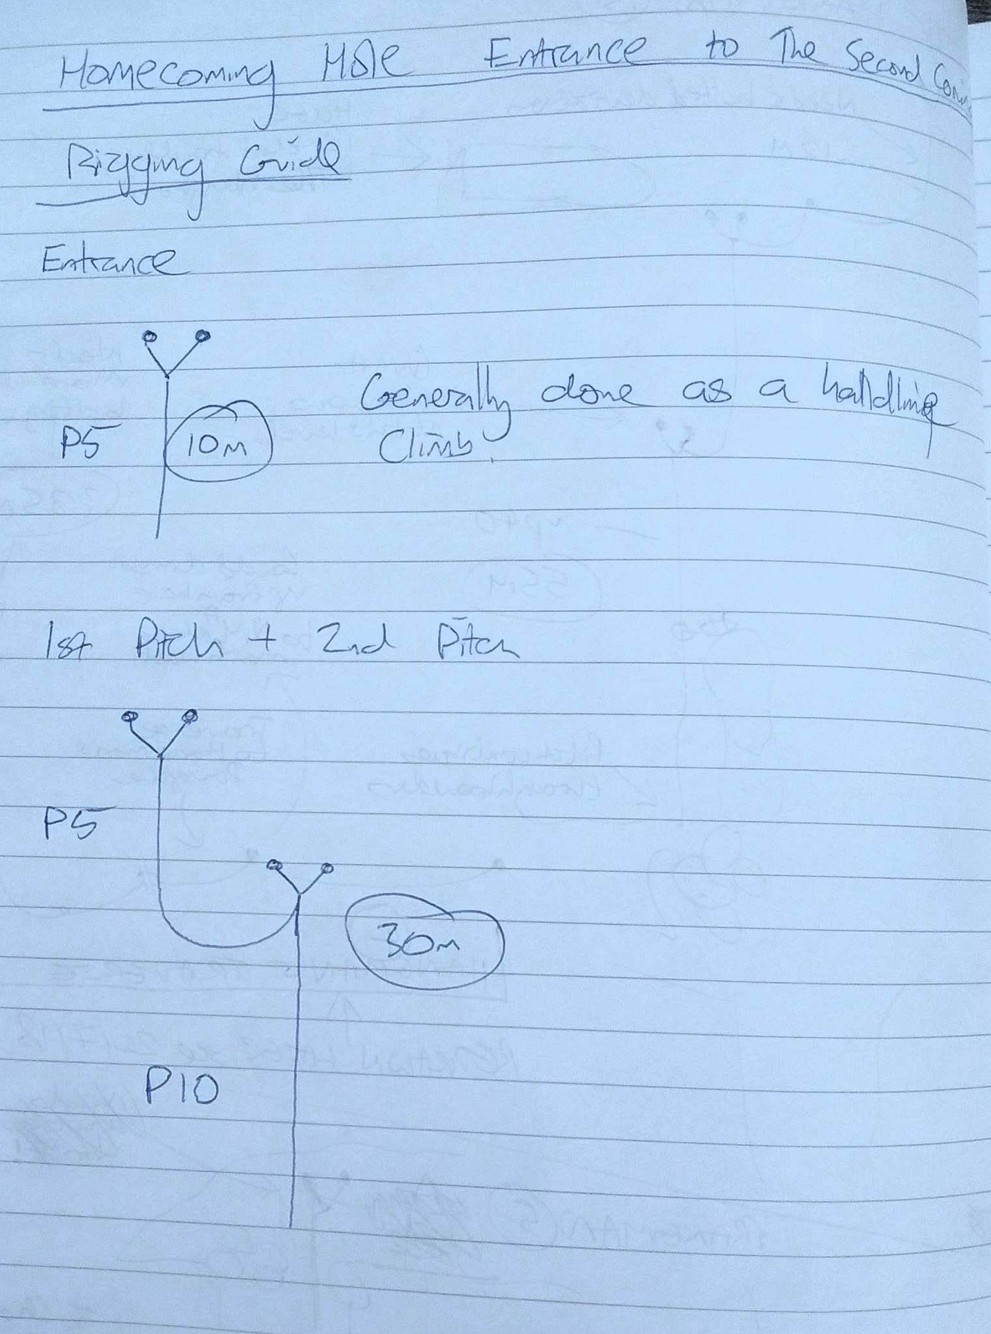 Homecoming Hole Entrance to The Second
Rigging Guide
Entrance
P5 10m Generally done as a handline
Climb.
1st Pitch + 2nd Pitch
P5
30m
P10